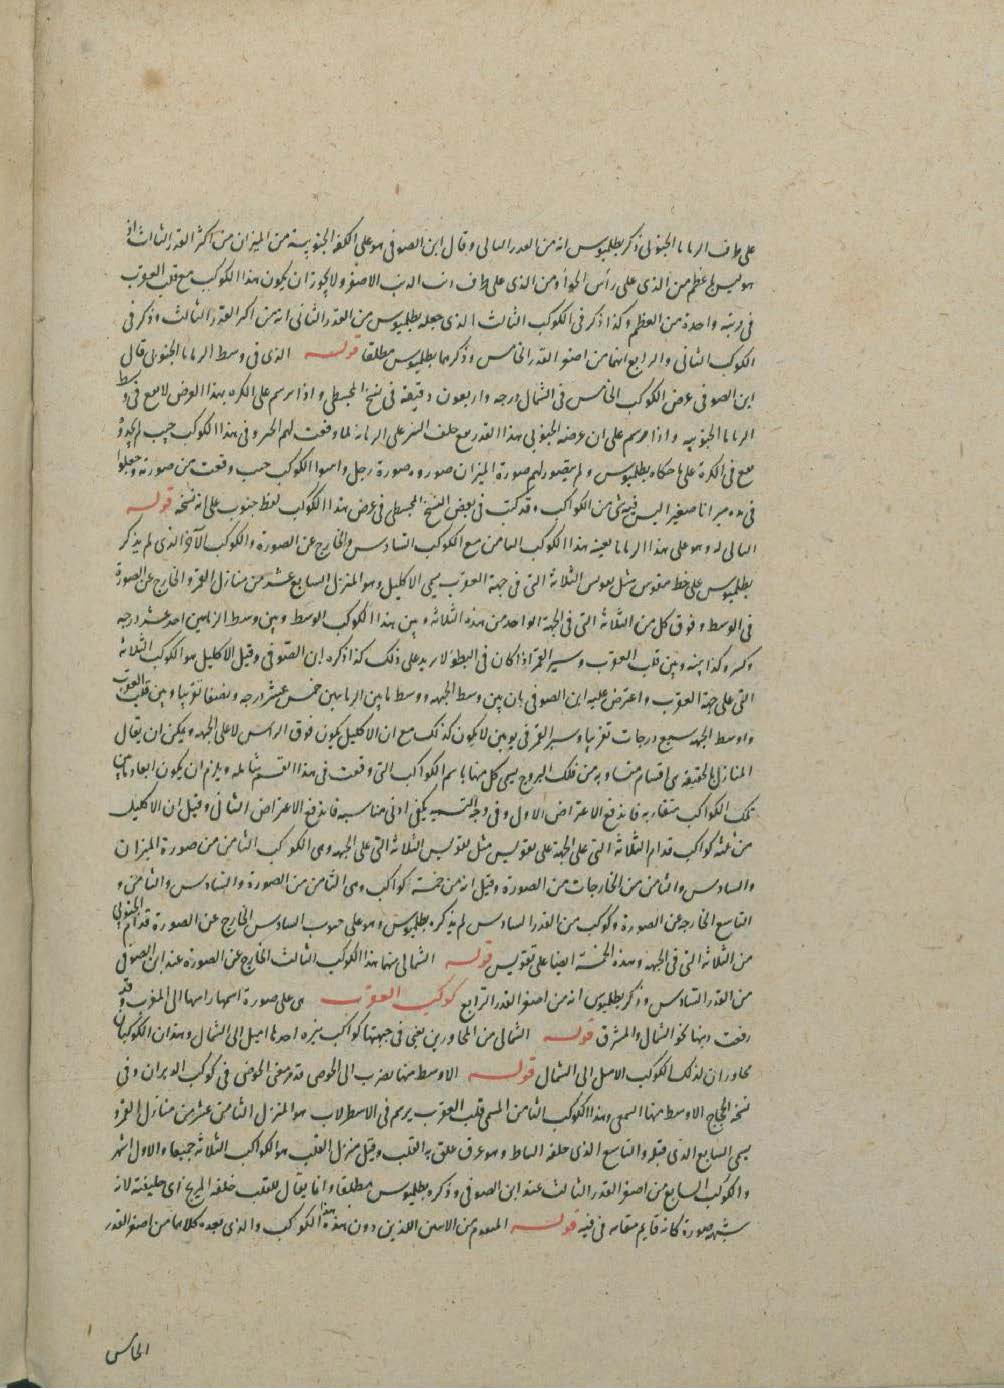 على طرف الزبانا الجنوبى ذكر بطلميوس انه من القدر الثانى وقال ابن الصوفى هو على الكفة الجنوبية من الميزان من اكثر القدر الثالث اذ
هو ليس باعظم من الذى على رأس الحوا ومن الذى على طرف ذنب الدب الاصغر ولا يجوز ان يكون هذا الكوكب مع قلب العقرب
فى مرتبة واحدة من العظم وكذا ذكر فى الكوكب الثالث الذى جعله بطلميوس من القدر الثانى انه من اكبر القدر الثالث وذكر فى
الكوكب الثانى والرابع انهما من اصغر القدر الخامس وذكرهما بطلميوس مطلقا قوله الذى فى وسط الزبانا الجنوبى قال
ابن الصوفى عرض الكوكب الخامس فى الشمال درجه واربعون دقيقة فى نسخ المجسطى واذا رسم على الكره بهذا العرض لا يقع فى وسط
الزبانا الجنوبيه واذا رسم على ان عرضه الجنوبى بهذا القدر يقع خلف النير على الزبانه
مع فى الكرة على ما حكاه بطلميوس ولم يتصور لهم صورة الميزان صوروه صورة رجل
فى يده ميزانا صغيرا ليس فيه شئ من الكواكب وقد كتب فى بعض النسخ المجسطى فى عرض هذا الكوكب لفظ جنوب على انه نسخه قوله
التالى له وهو على هذا الزبانا بعينه هذا الكوكب الثامن مع الكوكب السادس والخارج عن الصورة والكوكب الآخر الذى لم يذكر
بطلميوس على خط مقوس مثل تقويس الثلاثة التى فى جبهة العقرب يسمى الاكليل وهو المنزل السابع عشر من منازل القمر والخارج عن الصورة
فى الوسط وفوق كل من الثلاثة التى فى الجبهة الواحد من هذه الثلاثة وبين هذا الكوكب الوسط وبين وسط الزبانيين احد عشر درجه
وكسر وكذا بينه وبين قلب العقرب وسير القمر اذا كان فى البطؤ لا يزيد على ذلك كذا ذكره ابن الصوفى وقيل الاكليل هو الكوكب الثلاثة
التى على جبهة العقرب واعترض عليه ابن الصوفى بان بين وسط الجبهه ووسط ما بين الزبانيين خمس عشر درجه ونصفا تقريبا وبين قلب العقرب
واوسط الجبهه سبع درجات تقريبا وسير القمر فى يومين لا يكون كذلك مع ان الاكليل يكون فوق الرأس لا على الجبهه ويمكن ان يقال
المنازل بالحقيقة هى اقسام متساويه من فلك البروج يسمى كل منها باسم الكواكب التى وقعت فى هذا القسم ولا يلزم ان يكون ابعاد ما بين
تلك الكواكب متقاربه فاندفع الاعتراض الاول وفى وجه التسميه يكفى ادنى مناسبه فاندفع الاعتراض الثانى وقيل ان الاكليل
من ثلثة كواكب قدام الثلاثة التى على الجبهة على تقويس مثل تقويس الثلاثة التى على الجبهه وهى الكوكب الثامن من صورة الميزان
والسادس والثامن من الخارجات من الصورة وقيل انه من خمسة كواكب وهى الثامن من الصورة والسادس والثامن و
التاسع الخارجه عن الصورة وكوكب من القدر السادس لم يذكره بطلميوس وهو على جنوب السادس الخارج عن الصورة قدام الجنوبى
من الثلاثة التى فى الجبهه وهذه الخمسة ايضا على تقويس قوله الشمالى منهما هذا الكوكب الثالث الخارج عن الصورة عند ابن الصوفى
من القدر السادس وذكر بطلميوس انه من اصغر القدر الرابع كوكب العقرب هى على صورة اسمها راسها الى المغرب وقد
رفعت ذنبها نحو الشمال والمشرق قوله الشمالى من المجاورين يعنى فى جبهتها كواكب نيره احدها اميل الى الشمال وهذان الكوكبان
مجاوران لذلك الكوكب الاميل الى الشمال قوله الاوسط منها يضرب الى الحوصى قد مر معنى الحوصى فى كوكب الدبران وفى
نسخة الحجاج الاوسط منها وهذا الكوكب الثامن المسمى قلب العقرب يرسم فى الاسطرلاب هو المنزل الثامن عشر من منازل القمر و
يسمى السابع الذى قبله والتاسع الذى خلفه النياط وهو عرق علق به القلب وقيل منزل القلب هو الكواكب الثلاثة جميعا والاول اشهر
والكوكب السابع من اصغر القدر الثالث عند ابن الصوفى وذكره بطلميوس مطلقا وانما يقال للقلب خلفة المريخ اى خليفته لانه
يشبه صورة كانه قايم مقامه فى قوله المتقدم من الاثنين اللذين دون هذه الكوكب والذى بعده كلاهما من اصغر القدر
الخامس